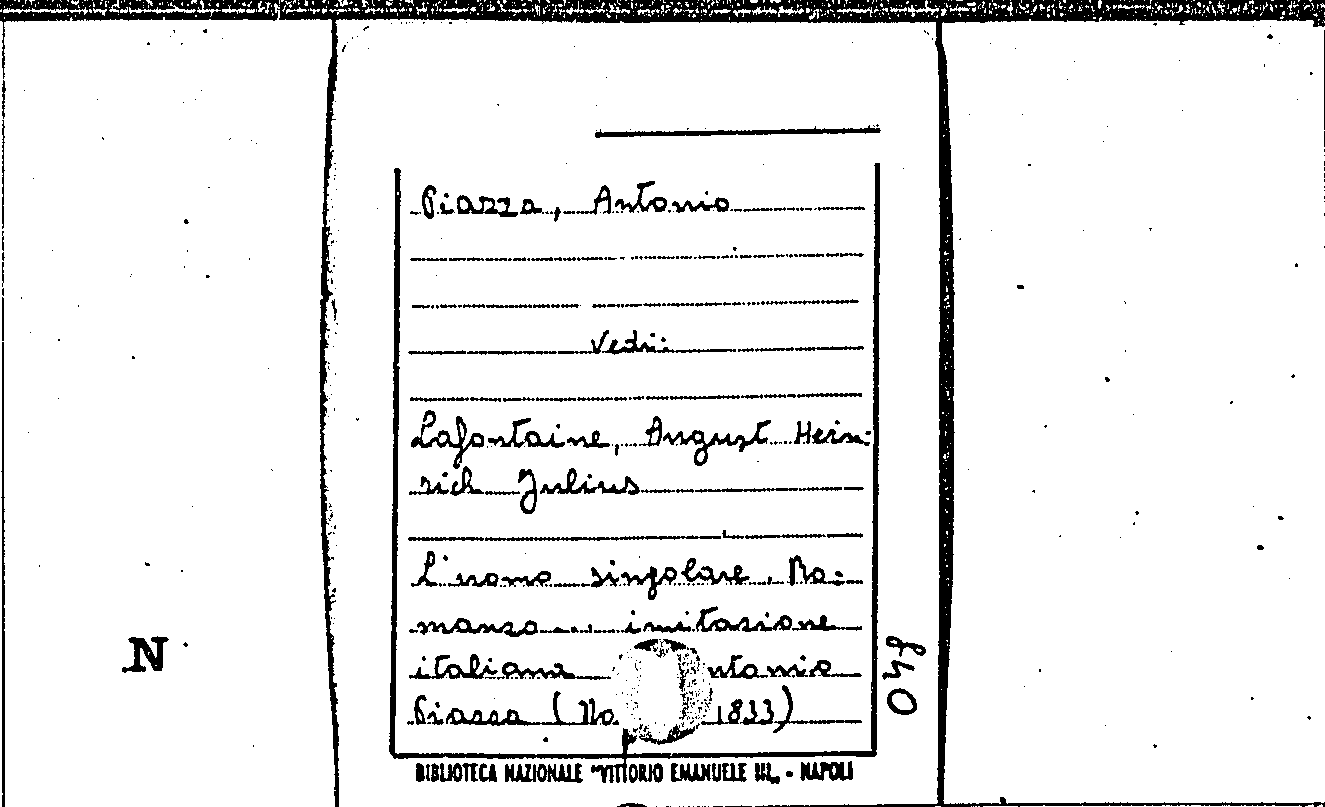 Piazza, Antonio
Vedi:
Lafontaine, August Hein:
rich Julius
L'uomo singolare. Ro:
manzo... imitazione
italiana ntonio
Piazza (Na 1833)
BIBLIOTECA NAZIONALE "VITTORIO EMANUELE III„ - NAPOLI
N